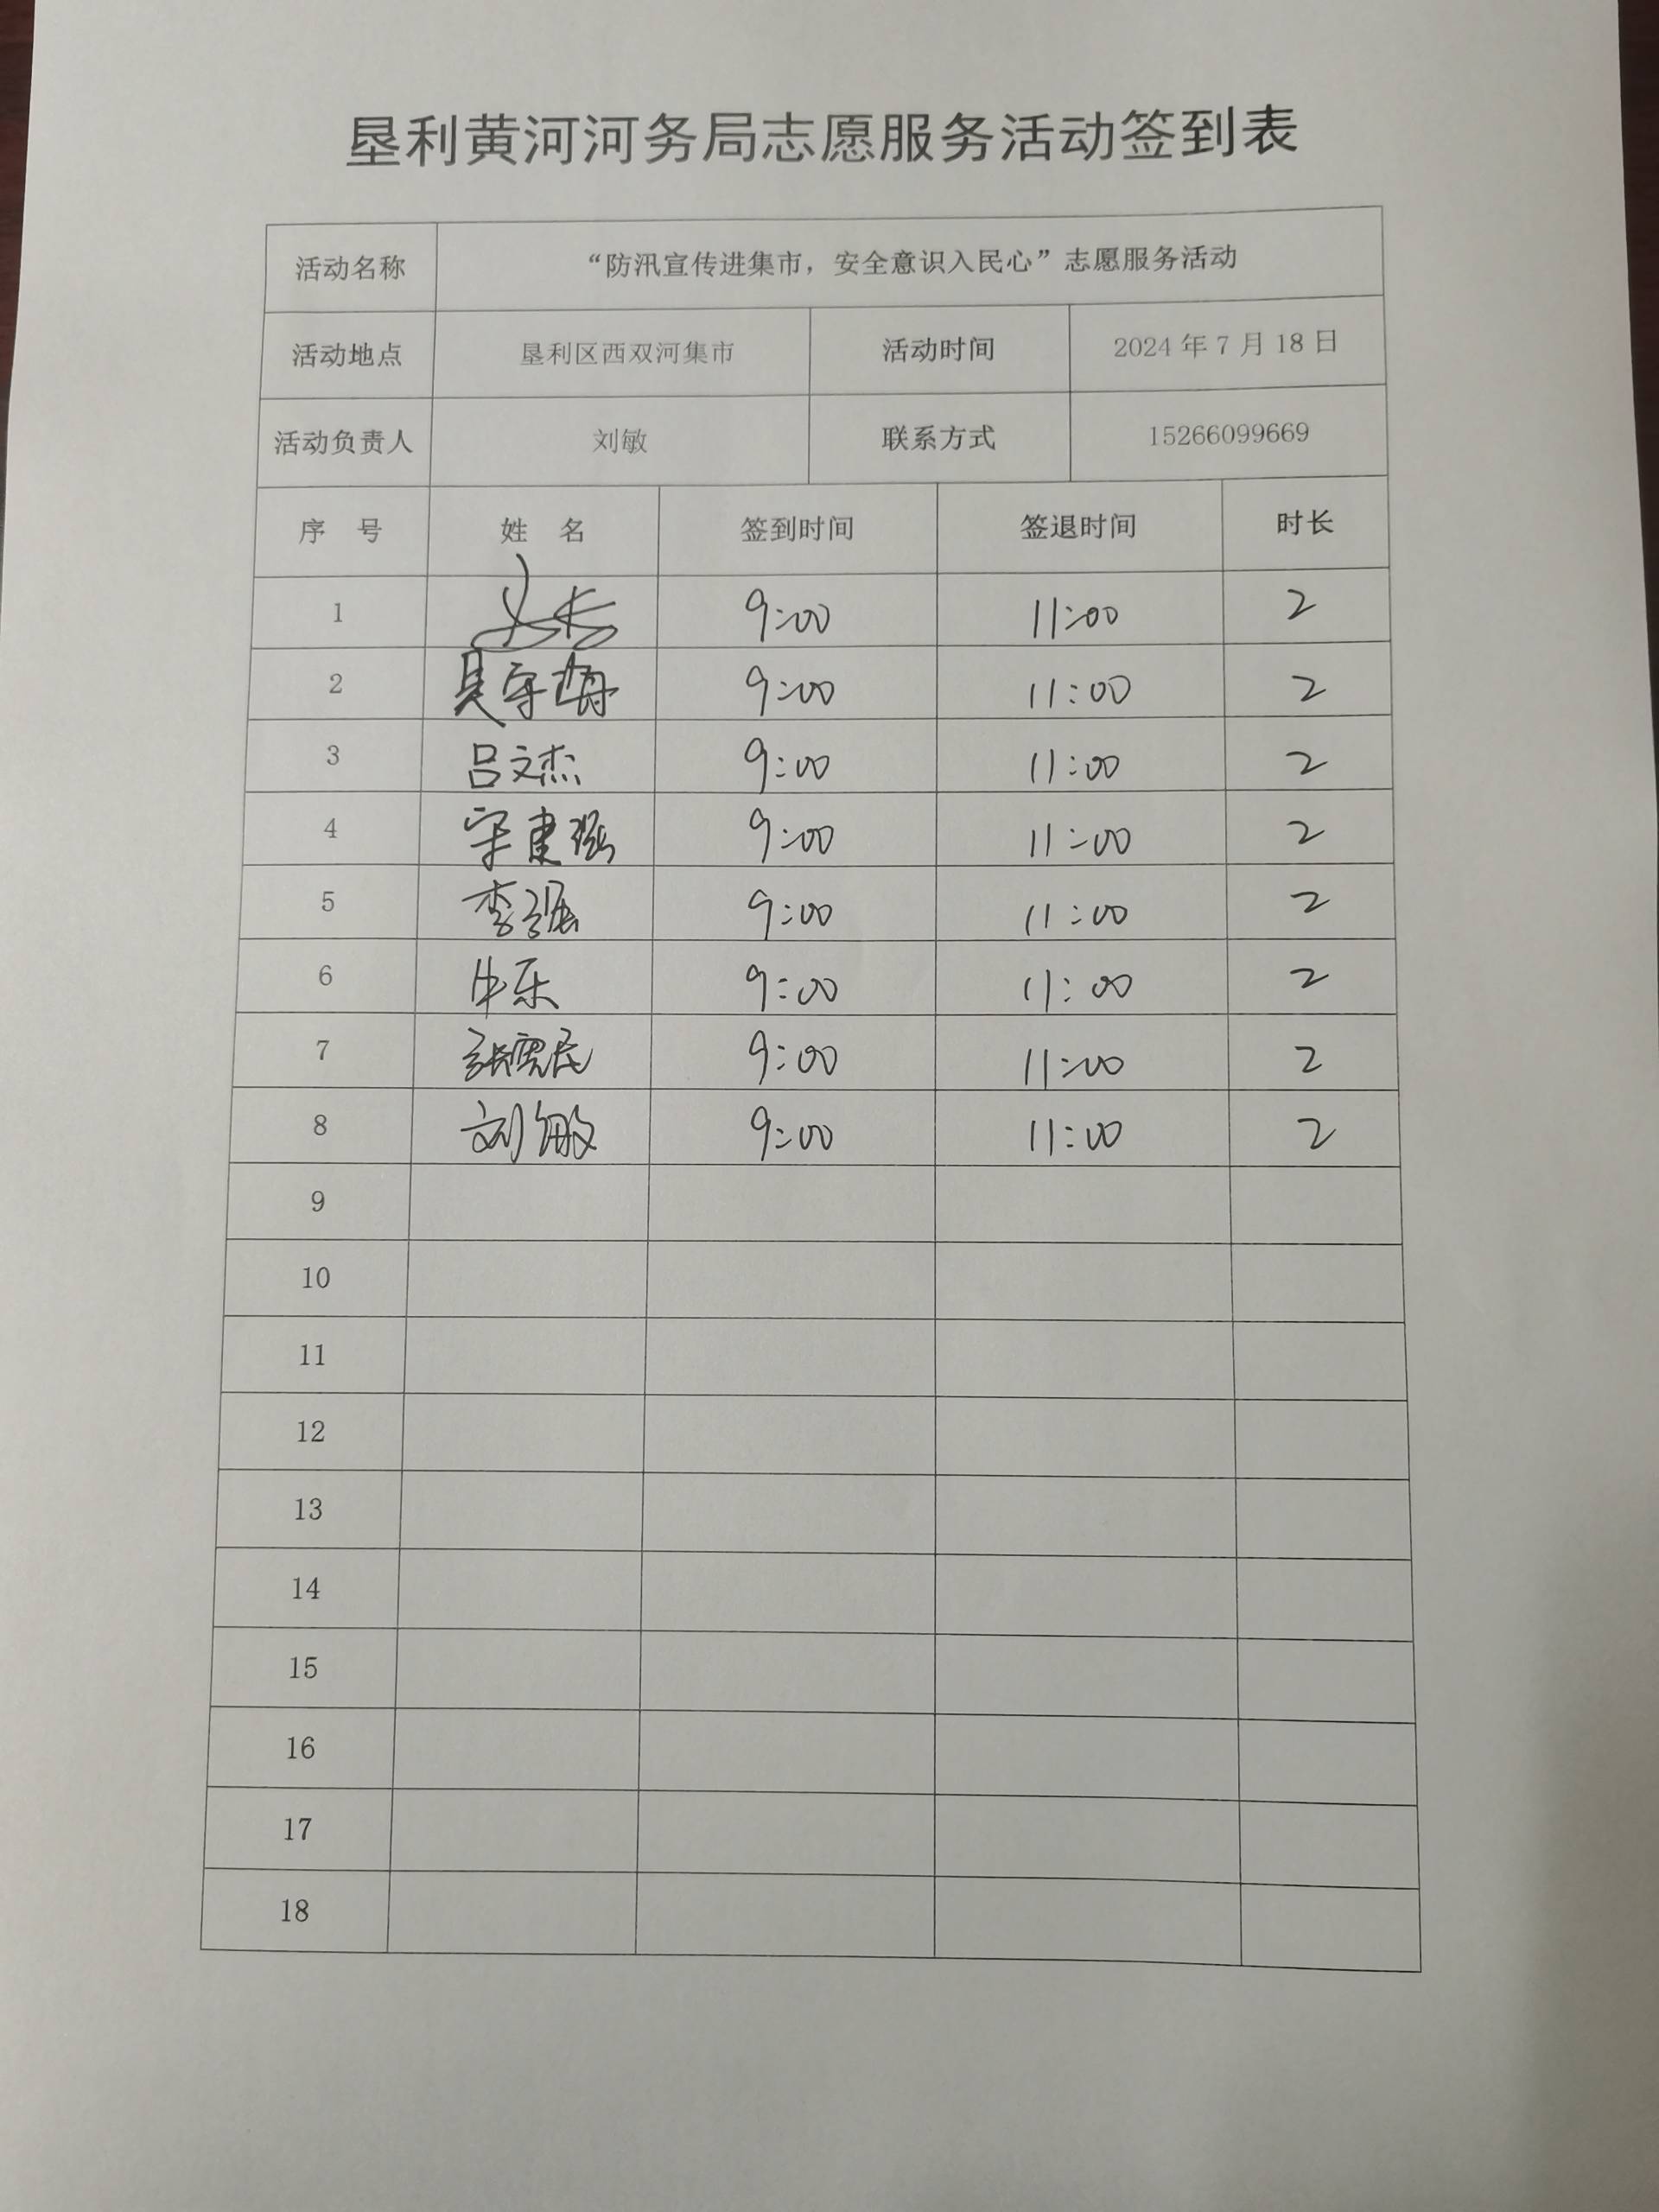 垦利黄河河务局志愿服务活动签到表
活动名称 “防汛宣传进集市，安全意识入民心”志愿服务活动
活动地点 垦利区西双河集市 活动时间 2024年7月18日
活动负责人 刘敏 联系方式 15266099669
序号 姓名 签到时间 签退时间 时长
1 9:00 11:00 2
2 9:00 11:00 2
3 吕文杰 9:00 11:00 2
4 宋建强 9:00 11:00 2
5 李强 9:00 11:00 2
6 牛乐 9:00 11:00 2
7 9:00 11:00 2
8 刘敏 9:00 11:00 2
9
10
11
12
13
14
15
16
17
18